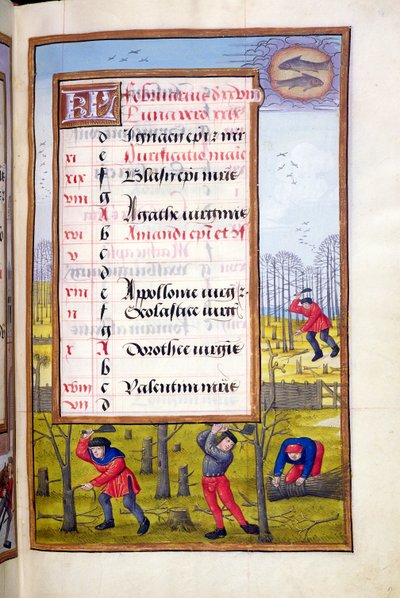 KL Februarius d xxviii
Luna
d Ignacii epi z mr
xi e Purificatio marie
xix f Blasii epi mris
viii g
A Agathe virginis
xvi b Amandi epi et
v c
d
xiii e Appolonie virg z
ii f Scolastice virg
g
x A Dorothee virgis
b
xviii c Valentini mris
vii d